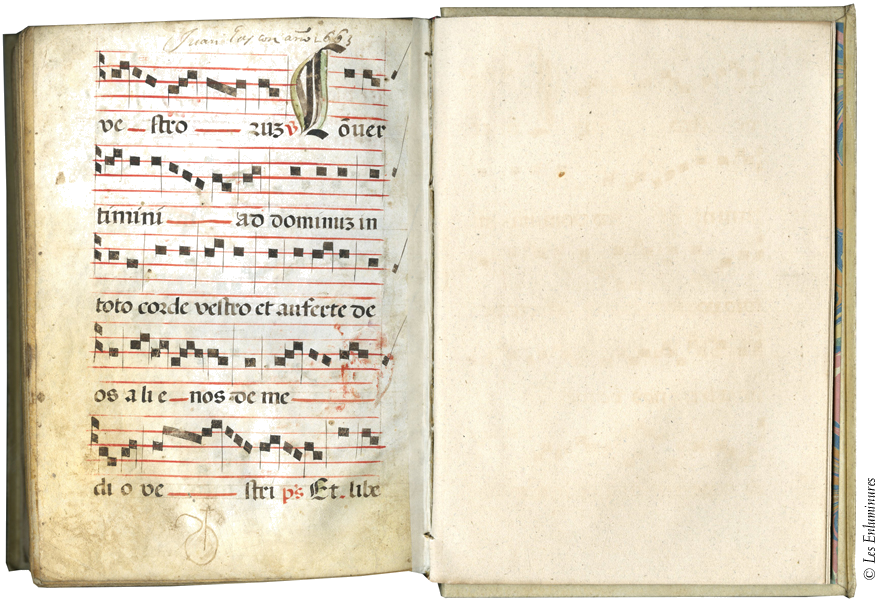 Juan año 1663
ve stro ruz V Conver
timini ad dominuz in
toto corde vestro et auferte de
os a li e nos de me
di o ve stri ps Et libe
© Les Enluminures